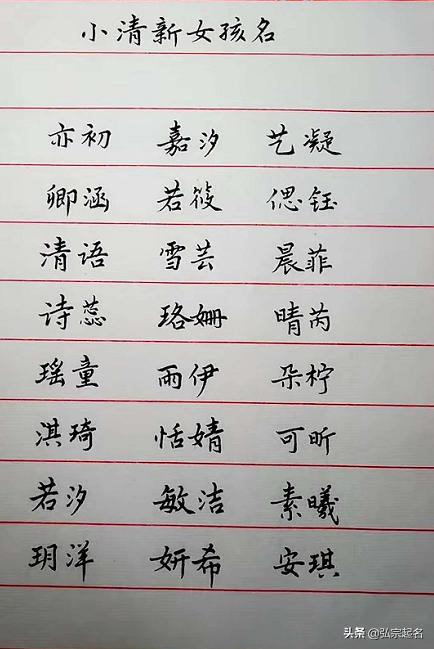 小清新女孩名
亦初 嘉汐 艺凝
卿涵 若筱 偲钰
清语 雪芸 晨菲
诗蕊 珞姗 晴芮
瑶童 雨伊 朵柠
淇琦 恬婧 可昕
若汐 敏洁 素曦
玥洋 妍希 安琪
头条 @弘宗起名